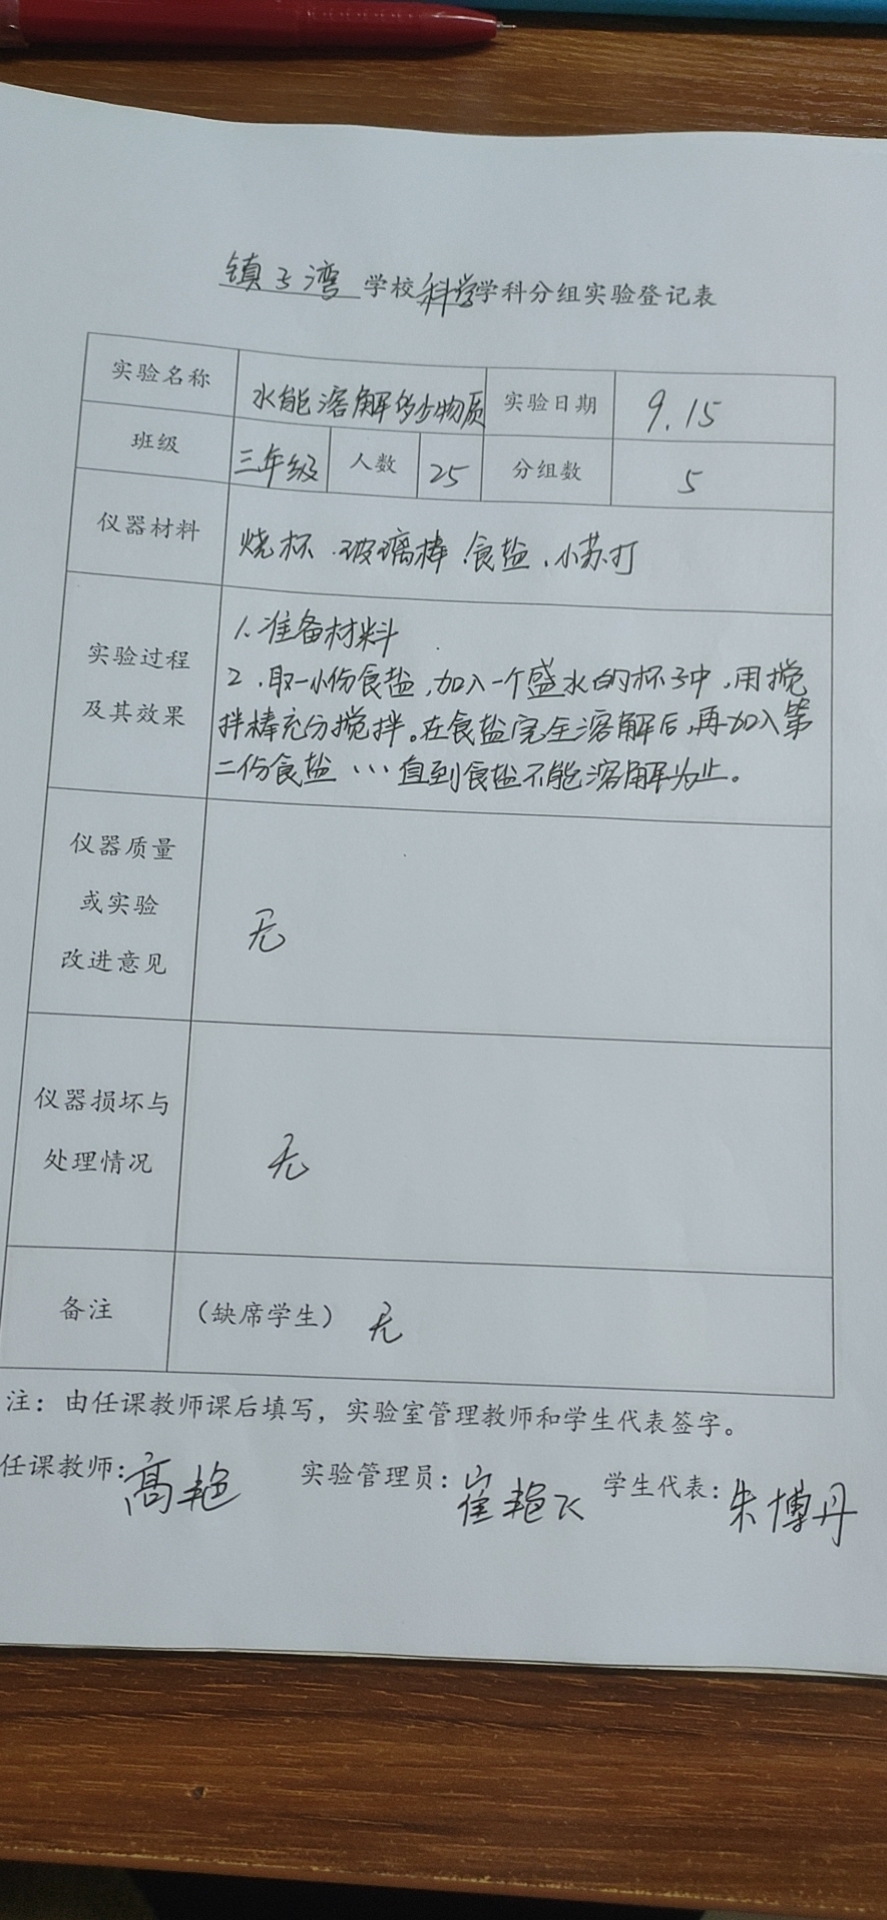 镇子湾学校科学学科分组实验登记表
实验名称 水能溶解多少物质 实验日期 9.15
班级 三年级 人数 25 分组数 5
仪器材料 烧杯、玻璃棒、食盐、小苏打
实验过程
及其效果
1.准备材料
2.取一小份食盐,加入一个盛水的杯子中,用搅
拌棒充分搅拌。在食盐完全溶解后,再加入第
二份食盐…直到食盐不能溶解为止。
仪器质量
或实验
改进意见
无
仪器损坏与
处理情况
无
备注 (缺席学生) 无
注:由任课教师课后填写,实验室管理教师和学生代表签字。
任课教师:高艳 实验管理员:崔艳飞 学生代表:朱博丹